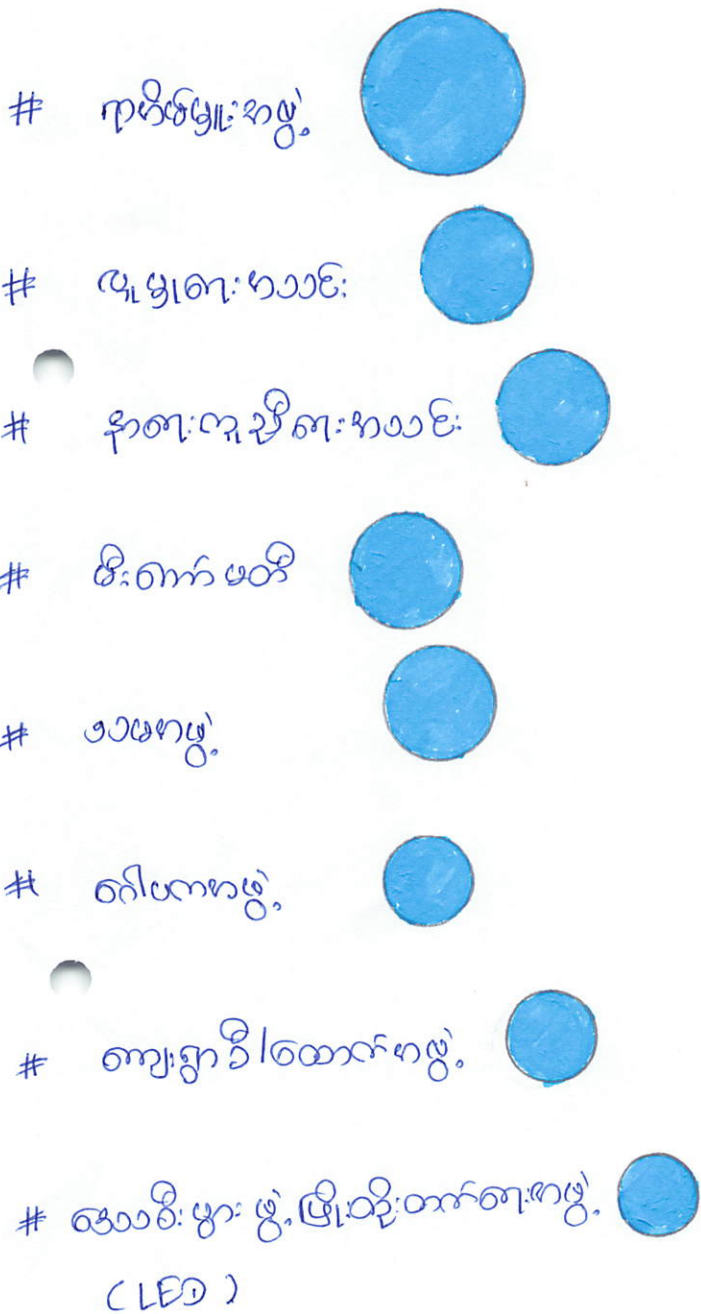 # ရာအိမ်မှူးအဖွဲ့
# လူမှုရေးအသင်း
# နာရေးကူညီရေးအသင်း
# မီးကော်မတီ
# ဘာသာအဖွဲ့
# ဂေါပကအဖွဲ့
# ကျေးရွာ ၁၀/ထောက်အဖွဲ့
# ဒေသစီးပွား ဖွံ့ဖြိုးတိုးတက်ရေးအဖွဲ့
(LED)